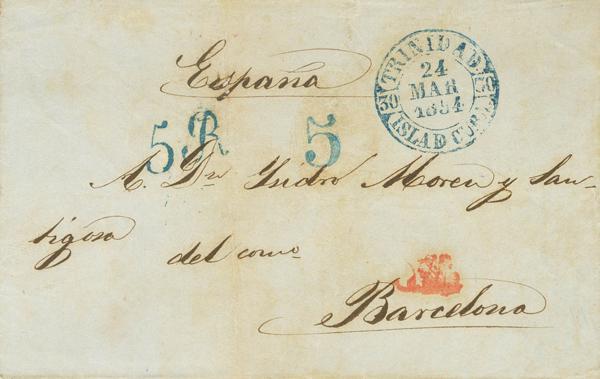 España
TRINIDAD
24
MAR
1854
30 30
ISLA DE CUBA
5R 5
A. Dn Ysidro Moreu y San-
tigosa
del como
Barcelona